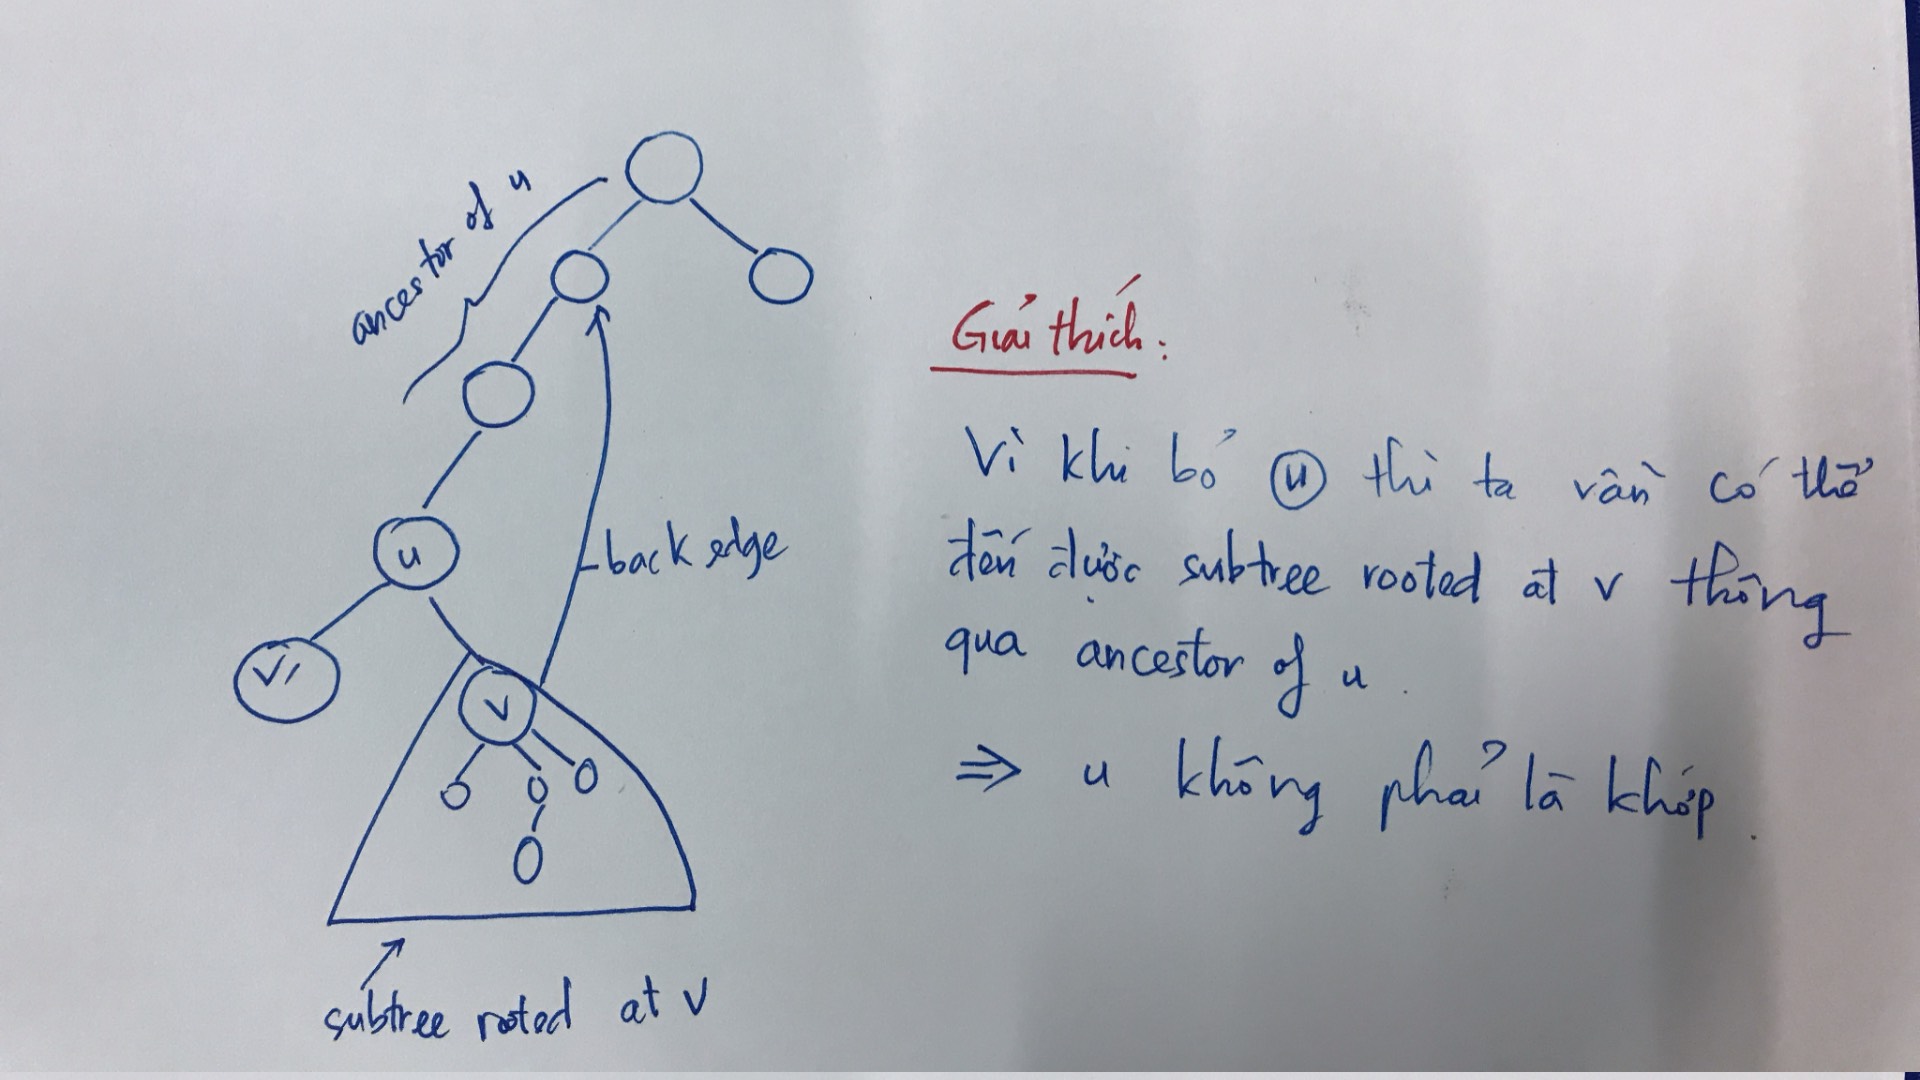 ancestor of u
Giải thích:
Vì khi bỏ u thì ta vẫn có thể
u
back edge
đến được subtree rooted at v thông
V1
qua ancestor of u.
v
⇒ u không phải là khớp.
subtree rooted at v